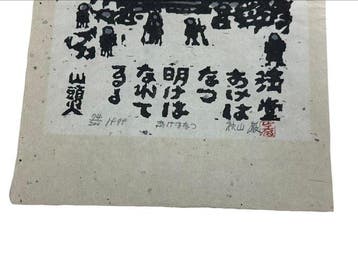 法堂
あけは
なつ
明けは
なれて
ゐる
山頭火
1999 あけはなつ 秋山 巌